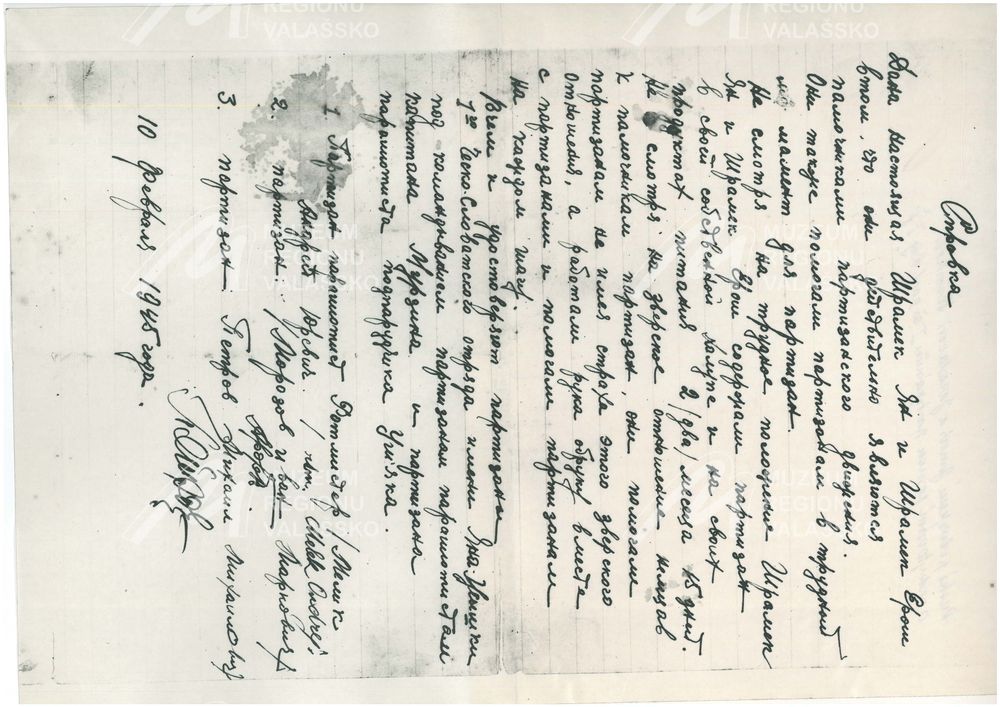 Справка
Дана настоящая Шрамек Ян и Шрамек Ерош
втом, что они действительно являются
памочиками партизанского движения.
Они также помогали партизанам в трудний
мамент для партизан.
Не смотря на трудное положение Шрамек
Ян и Шрамек Ерош содержали партизан
в своей собственной халупе и на своих
продуктах питания 2/два/месеца 15 дний.
Не смотря на зверское отношение немцав
к памошникам партизан, они помогали
партизанам не имея страха этого зверского
отношения, а работали рука обруку вместе
с партизанами и помогали партизанам
на каждом шагу.
Вчем и удостоверяют партизаны
1го Ческо-Словатского отряда имени Яна Ушияка
под командиванием партизанам парашютистам
капитана Мурзина и партизана
парашютиста подпаручика Ушияка.
1. Партизан парашютист Ротмистер/Мелик
Андрей Юревич./
2. партизан /Морозов Иван Миронович/
3. партизан Петров Михаил Михайлович
10 февраля 1945 года.
MUZEUM
REGIONU
VALAŠSKO